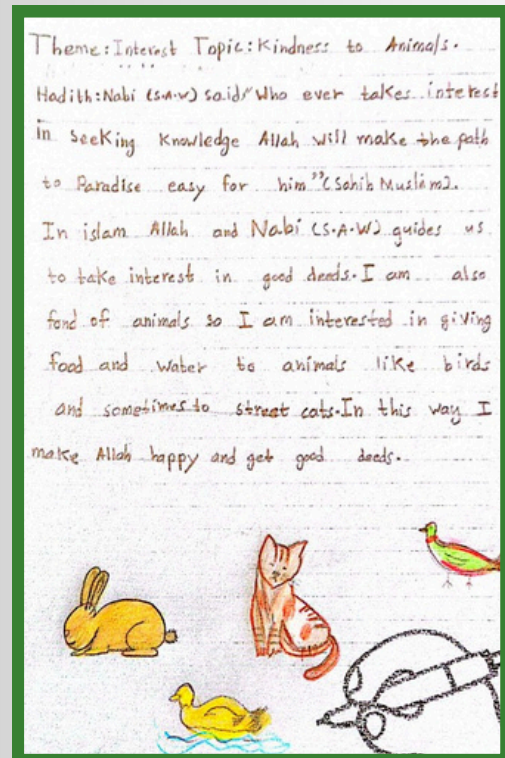 Theme: Interest Topic: Kindness to Animals.
Hadith: Nabi (S.A.W) said "Who ever takes interest
in seeking knowledge Allah will make the path
to Paradise easy for him" (Sahih Muslim).
In islam Allah and Nabi (S.A.W) guides us
to take interest in good deeds. I am also
fond of animals so I am interested in giving
food and water to animals like birds
and sometimes to street cats. In this way I
make Allah happy and get good deeds.